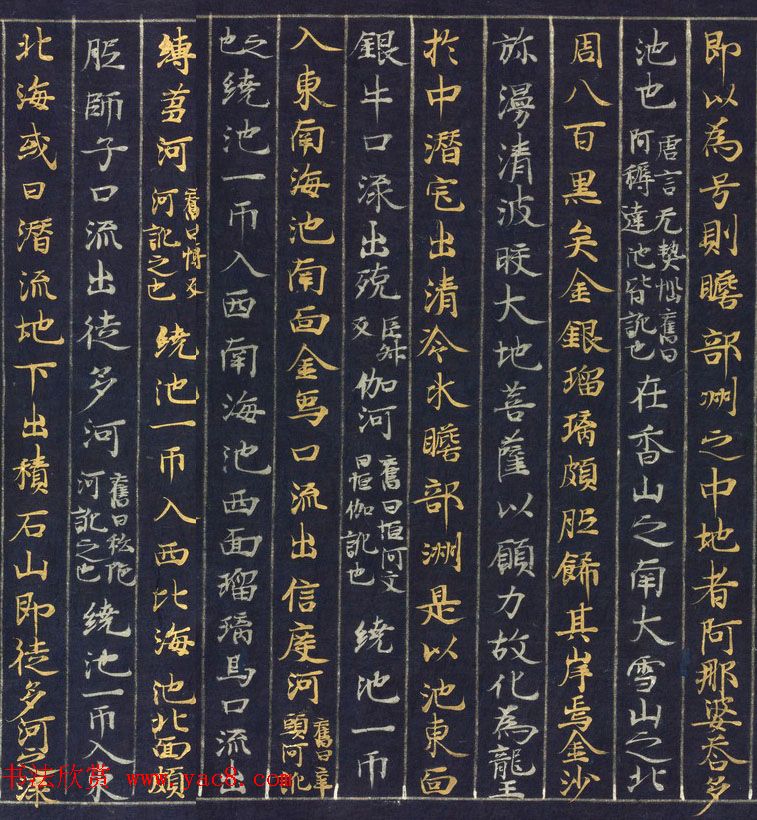 即以為号則瞻部洲之中地者阿那婆荅多
池也唐言无熱惱舊曰阿耨達池皆訛也在香山之南大雪山之北
周八百黑矣金銀瑠璃頗胝飾其岸焉金沙
弥漫清波皎大地菩薩以願力故化為龍王
於中潛宅出清冷水瞻部洲是以池東面
銀牛口流出殑巨升反伽河舊曰恒河又曰恒伽訛也繞池一帀
入東南海池南面金烏口流出信度河舊曰辛頭河訛
之也繞池一帀入西南海池西面瑠璃馬口流出
縛芻河舊曰博叉河訛之也繞池一帀入西北海池北面頗
胝師子口流出徙多河舊曰私陀河訛之也繞池一帀入東
北海或曰潛流地下出積石山即徙多河之流
书法欣赏 www.yac8.com